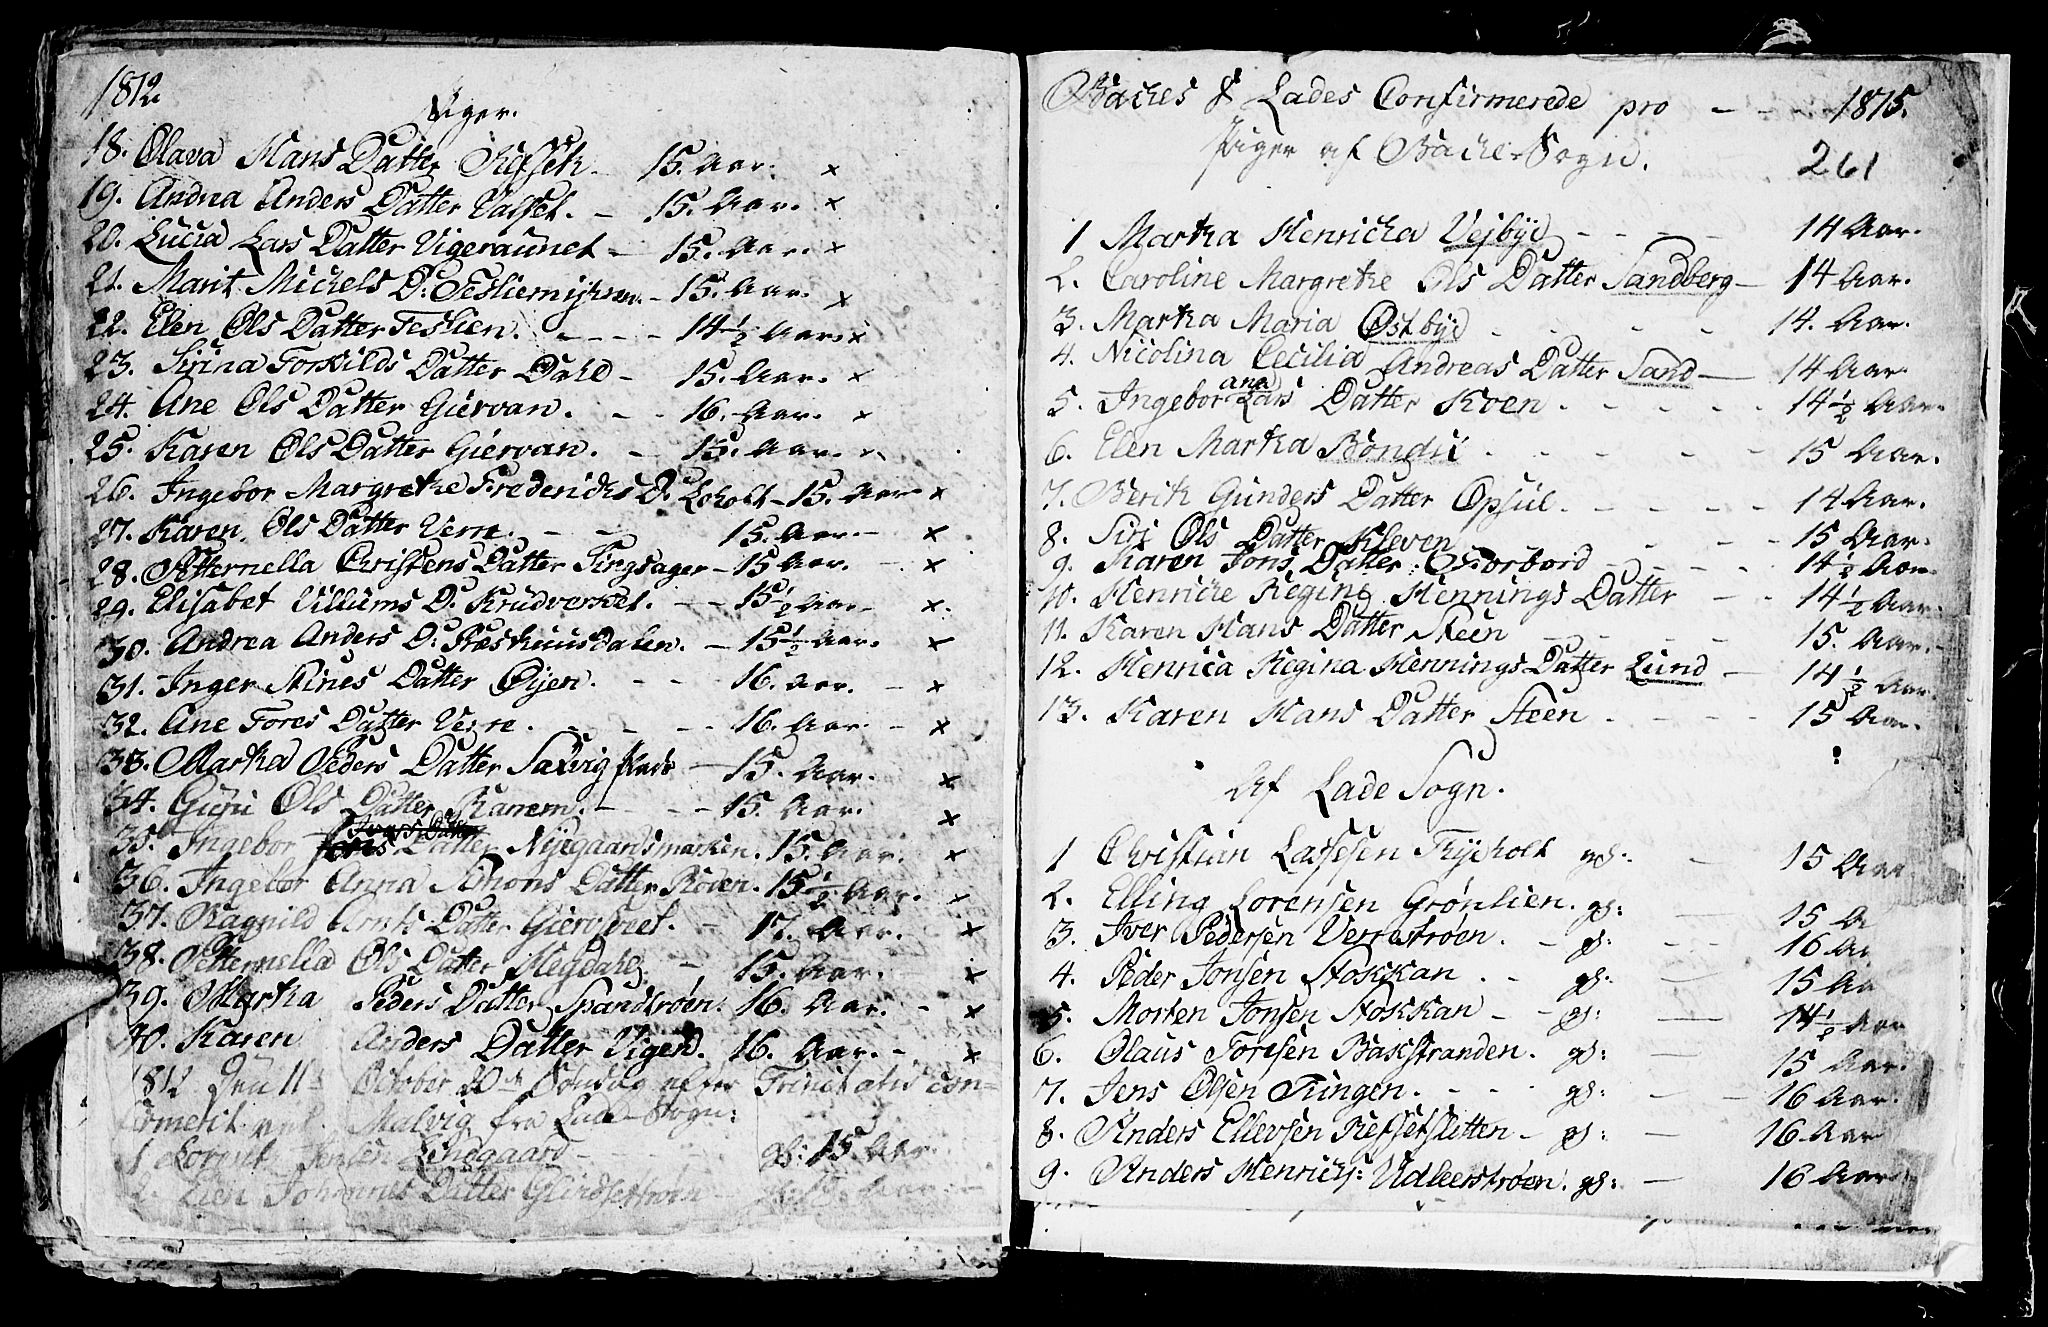 1812
Piger.
18. Olava Hans Datter Refset. 15. Aar. ×
19. Andna Anders Datter Valset. - 15. Aar. ×
20. Lucia Lars Datter Vigeraunet - 15. Aar. ×
21. Marit Michels D: Tesliemyhren. - 15. Aar. ×
22. Elen Ols Datter Teslien. - - - - 14 1/2 Aar. ×
23. Sirina Torkilds Datter Dahl - 15. Aar. ×
24. Ane Ols Datter Giervan. - - 16. Aar. ×
25. Karen Ols Datter Giervan. - 15. Aar. - ×
26. Ingebor Margrethe Fredericks D. Leholt - 15. Aar ×
27. Karen Ols Datter Verre. - - 15. Aar. - ×
28. Petternella Christens Datter Singsager - 15 Aar. - ×
29. Elisabet Villums D. Krudverket. - - 15 1/2 Aar - ×.
30. Andrea Anders D. Næshuusdalen. - 15 1/2 Aar. ×
31. Inger Stines Datter Øijen. - - - 16. Aar. - ×
32. Ane Tores Datter Verre. - - - 16. Aar. - ×
33. Martha Peders Datter Saxvig - 15. Aar. ×
34. Guri Ols Datter Ranem. - - - 15. Aar. ×
Ivers Datter
35. Ingebor Datter Nygaardsmarken. 15. Aar. ×
36. Ingebor Anna Simons Datter Røven. 15 1/2 Aar. ×
37. Ragnild Arnts Datter - 17. Aar. ×
38. Petternelia Ols Datter - 15. Aar. ×
39. Martha Peders Datter Spandtrøen. 16. Aar. - ×
40. Karen Anders Datter Vigen. 16. Aar. - ×
1812 den 11te October 20de Søndag efter Trinitatis con=
firmerit ved Malvig fra Lade Sogn:
1 Lorents Jensen Lindgaard - gs: 15 Aar.
2. Elen Johannes Datter
Baches & Lades Confirmerede pro - - 1815.
Piger af Bache Sogn. 261
1 Martha Henricha Vejbye - - - - 14 Aar.
2. Caroline Margrethe Ols Datter Sandberg - 14 Aar.
3. Martha Maria Østbye - - - - 14. Aar.
4. Nicolina Cecilia Andreas Datter Sand - 14 Aar
ana
5. Ingebor Lars Datter Kven. - - - - 14 1/2 Aar.
6. Elen Martha Bondli - - - - 15 Aar.
7. Berith Gunders Datter Opsul. - - - - 14 Aar.
8. Siri Ols Datter Kleven - - - 15 Aar.
9. Karen Jons Datter Forbord - - - - 14 1/2 Aar.
10. Henriche Regine Hennings Datter - - 14 1/2 Aar.
11. Karen Hans Datter Steen - - - - 15. Aar.
12. Henrica Regina Hennings Datter Lund - 14 1/2 Aar.
13. Karen Hans Datter Steen. - - - - 15 Aar.
Af Lade Sogn.
1 Christian Lassesen Tryeholt gs: - 15 Aar
2. Elling Lorensen Grønlien. gs: - 15 A
3. Iver Pedersen Verrestrøen. - gs: - - 16 Aa
4. Peder Jonsen Stokkan - - gs: - 15 Aa
5. Morten Jonsen Stokkan - - gs: - 14 1/2 Aar
6. Olaus Toresen Bakstranden. gs: - 15 Aar.
7. Jens Olsen Ringen. - - - gs: - - 16 Aar.
8. Anders Ellevsen Refsetslitten - gs: - 16 Aar
9. Anders Henrichs: Udleerstrøen. gs: - 16 Aar.